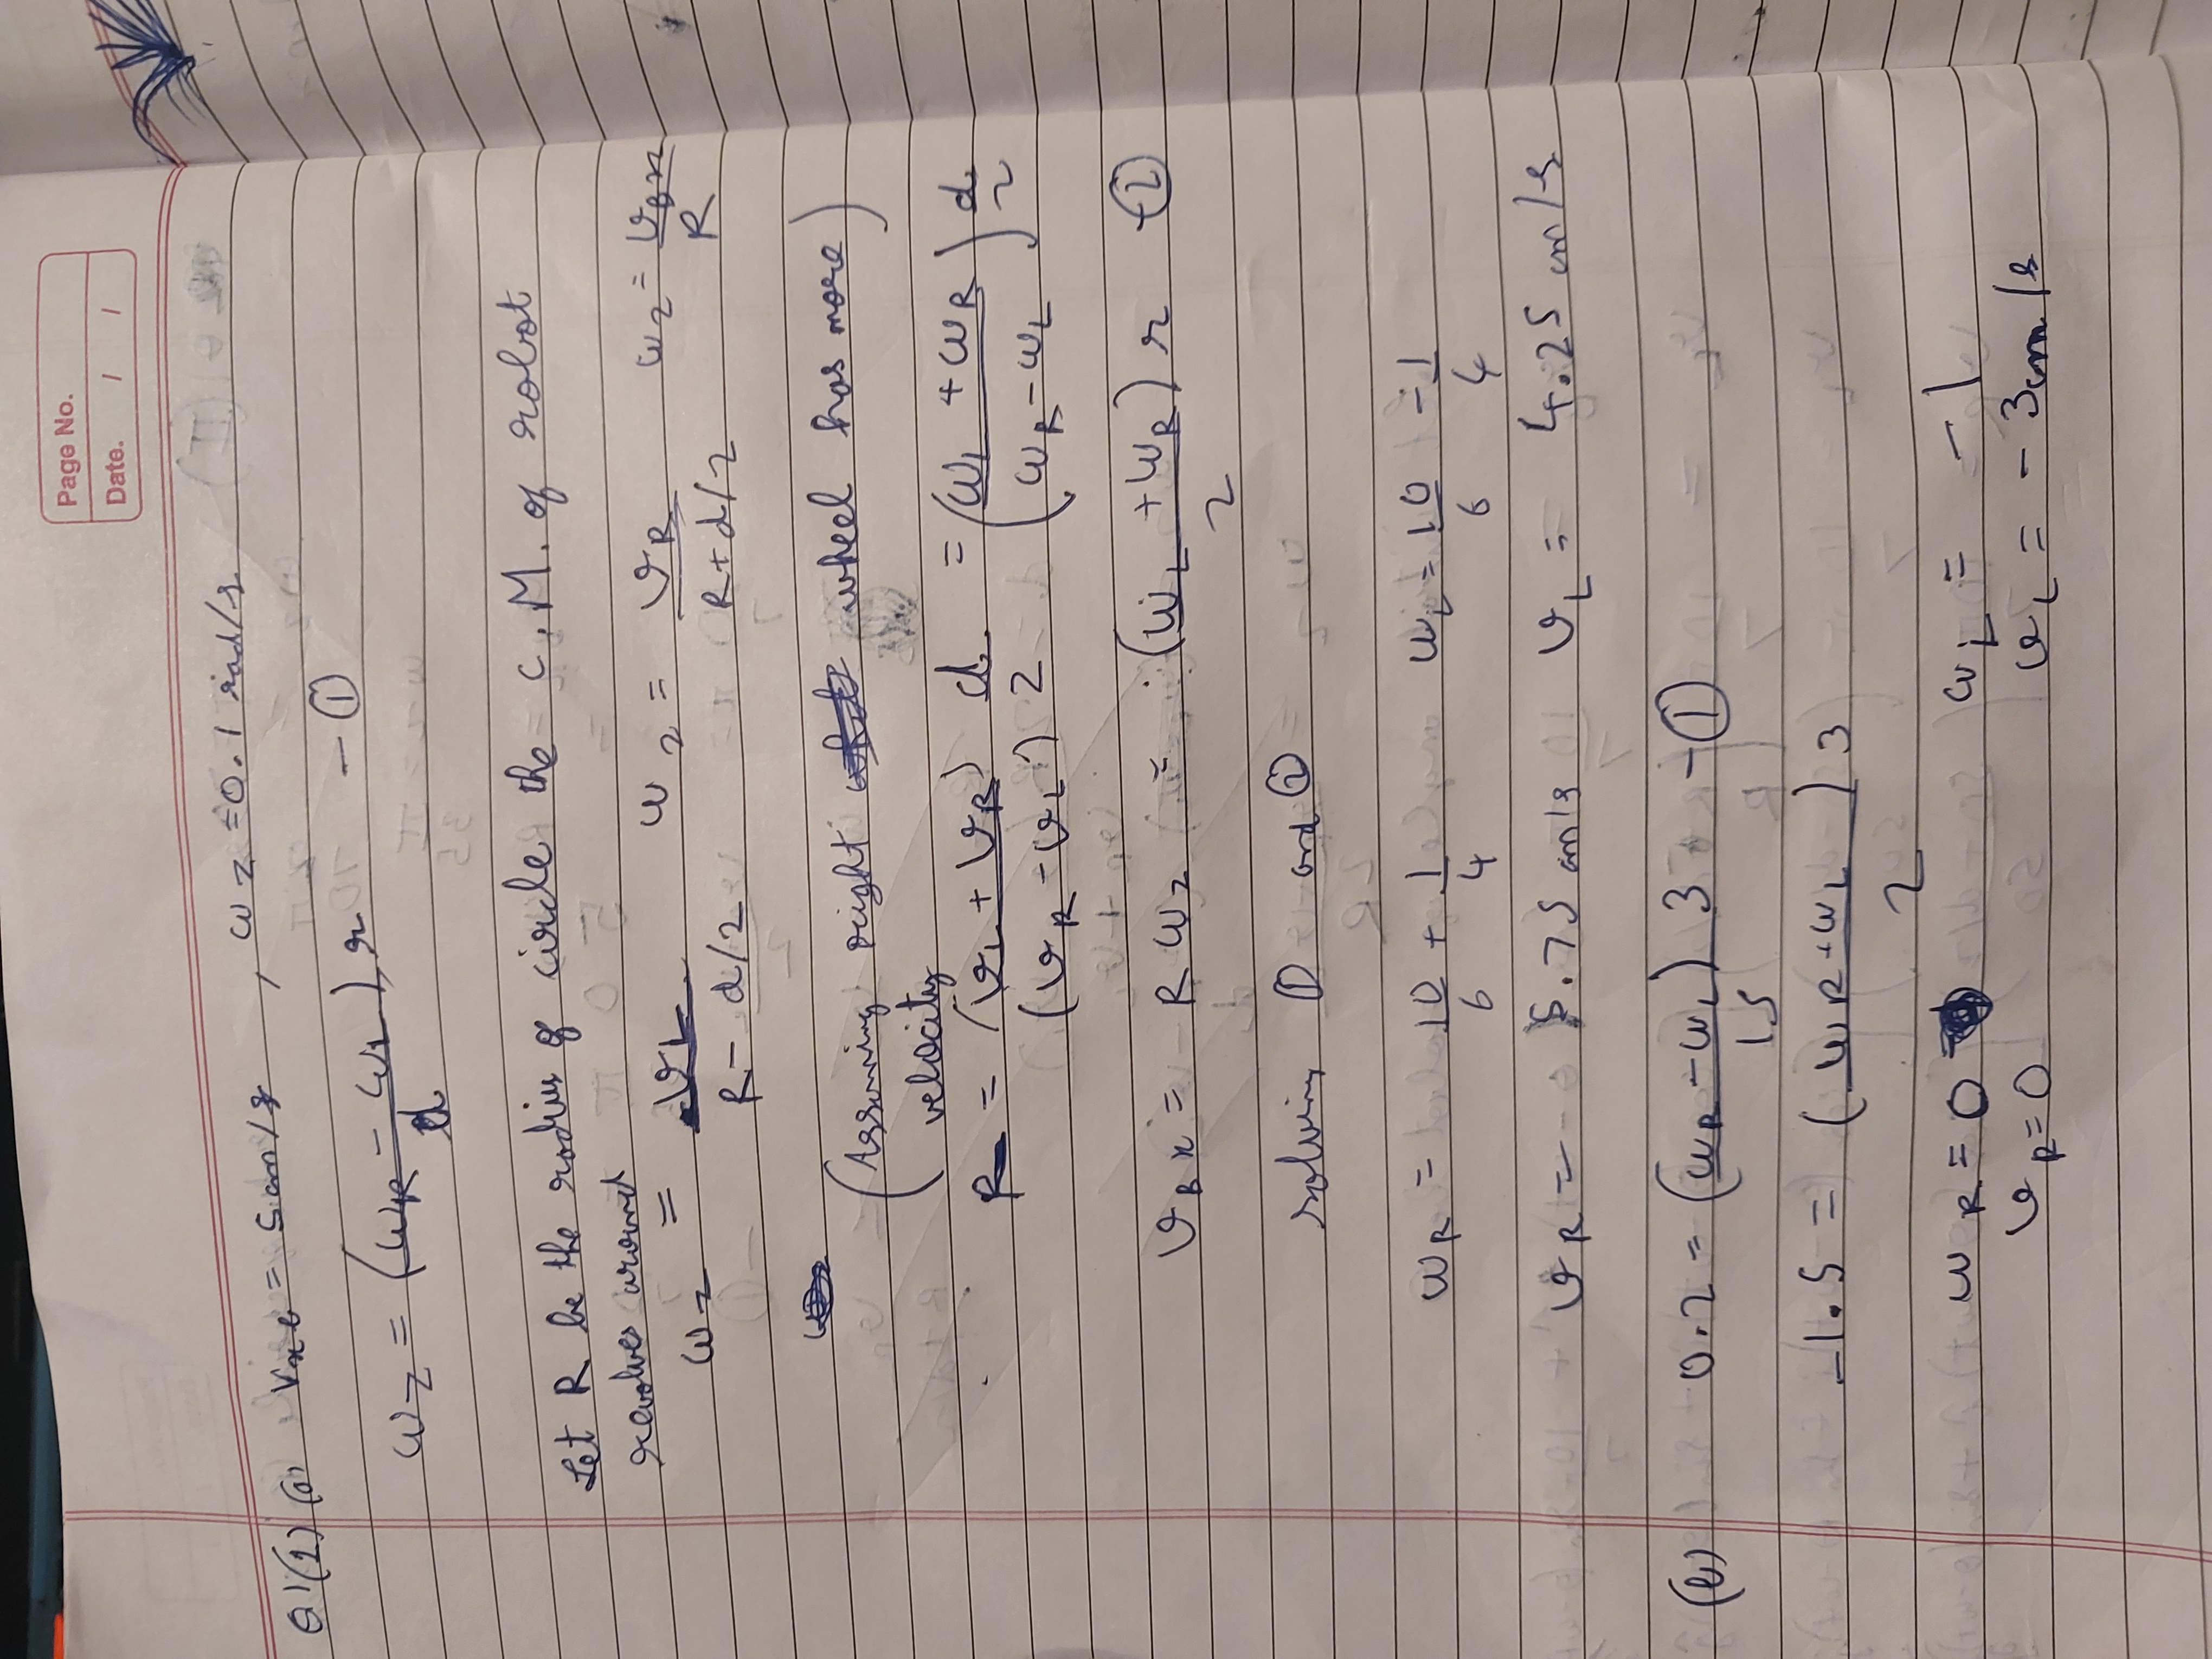 Page No.
Date. / /
Q1(1) (a) Vxb = 5cm/s , ωz = 0.1 rad/s
ωz = (ωR - ωL) r / d - ①
Let R be the radius of circle the C.M. of robot
revolves around
ωz = vL / (R - d/2) ωz = vR / (R + d/2) ωz = vBx / R
(Assuming right wheel has more
velocity)
R = (vL + vR) d / (vR - vL) 2 = ((ωL + ωR) / (ωR - ωL)) d/2
vBx = R ωz = (ωL + ωR) r / 2 - ②
solving ① and ②
ωR = 10/6 + 1/4 ωL = 10/6 - 1/4
vR = 5.75 cm/s vL = 4.25 cm/s
(b) 0.2 = (ωR - ωL) 3 / 15 - ①
-1.5 = (ωR + ωL) 3 / 2
ωR = 0 ωL = -1
vR = 0 vL = -3cm/s